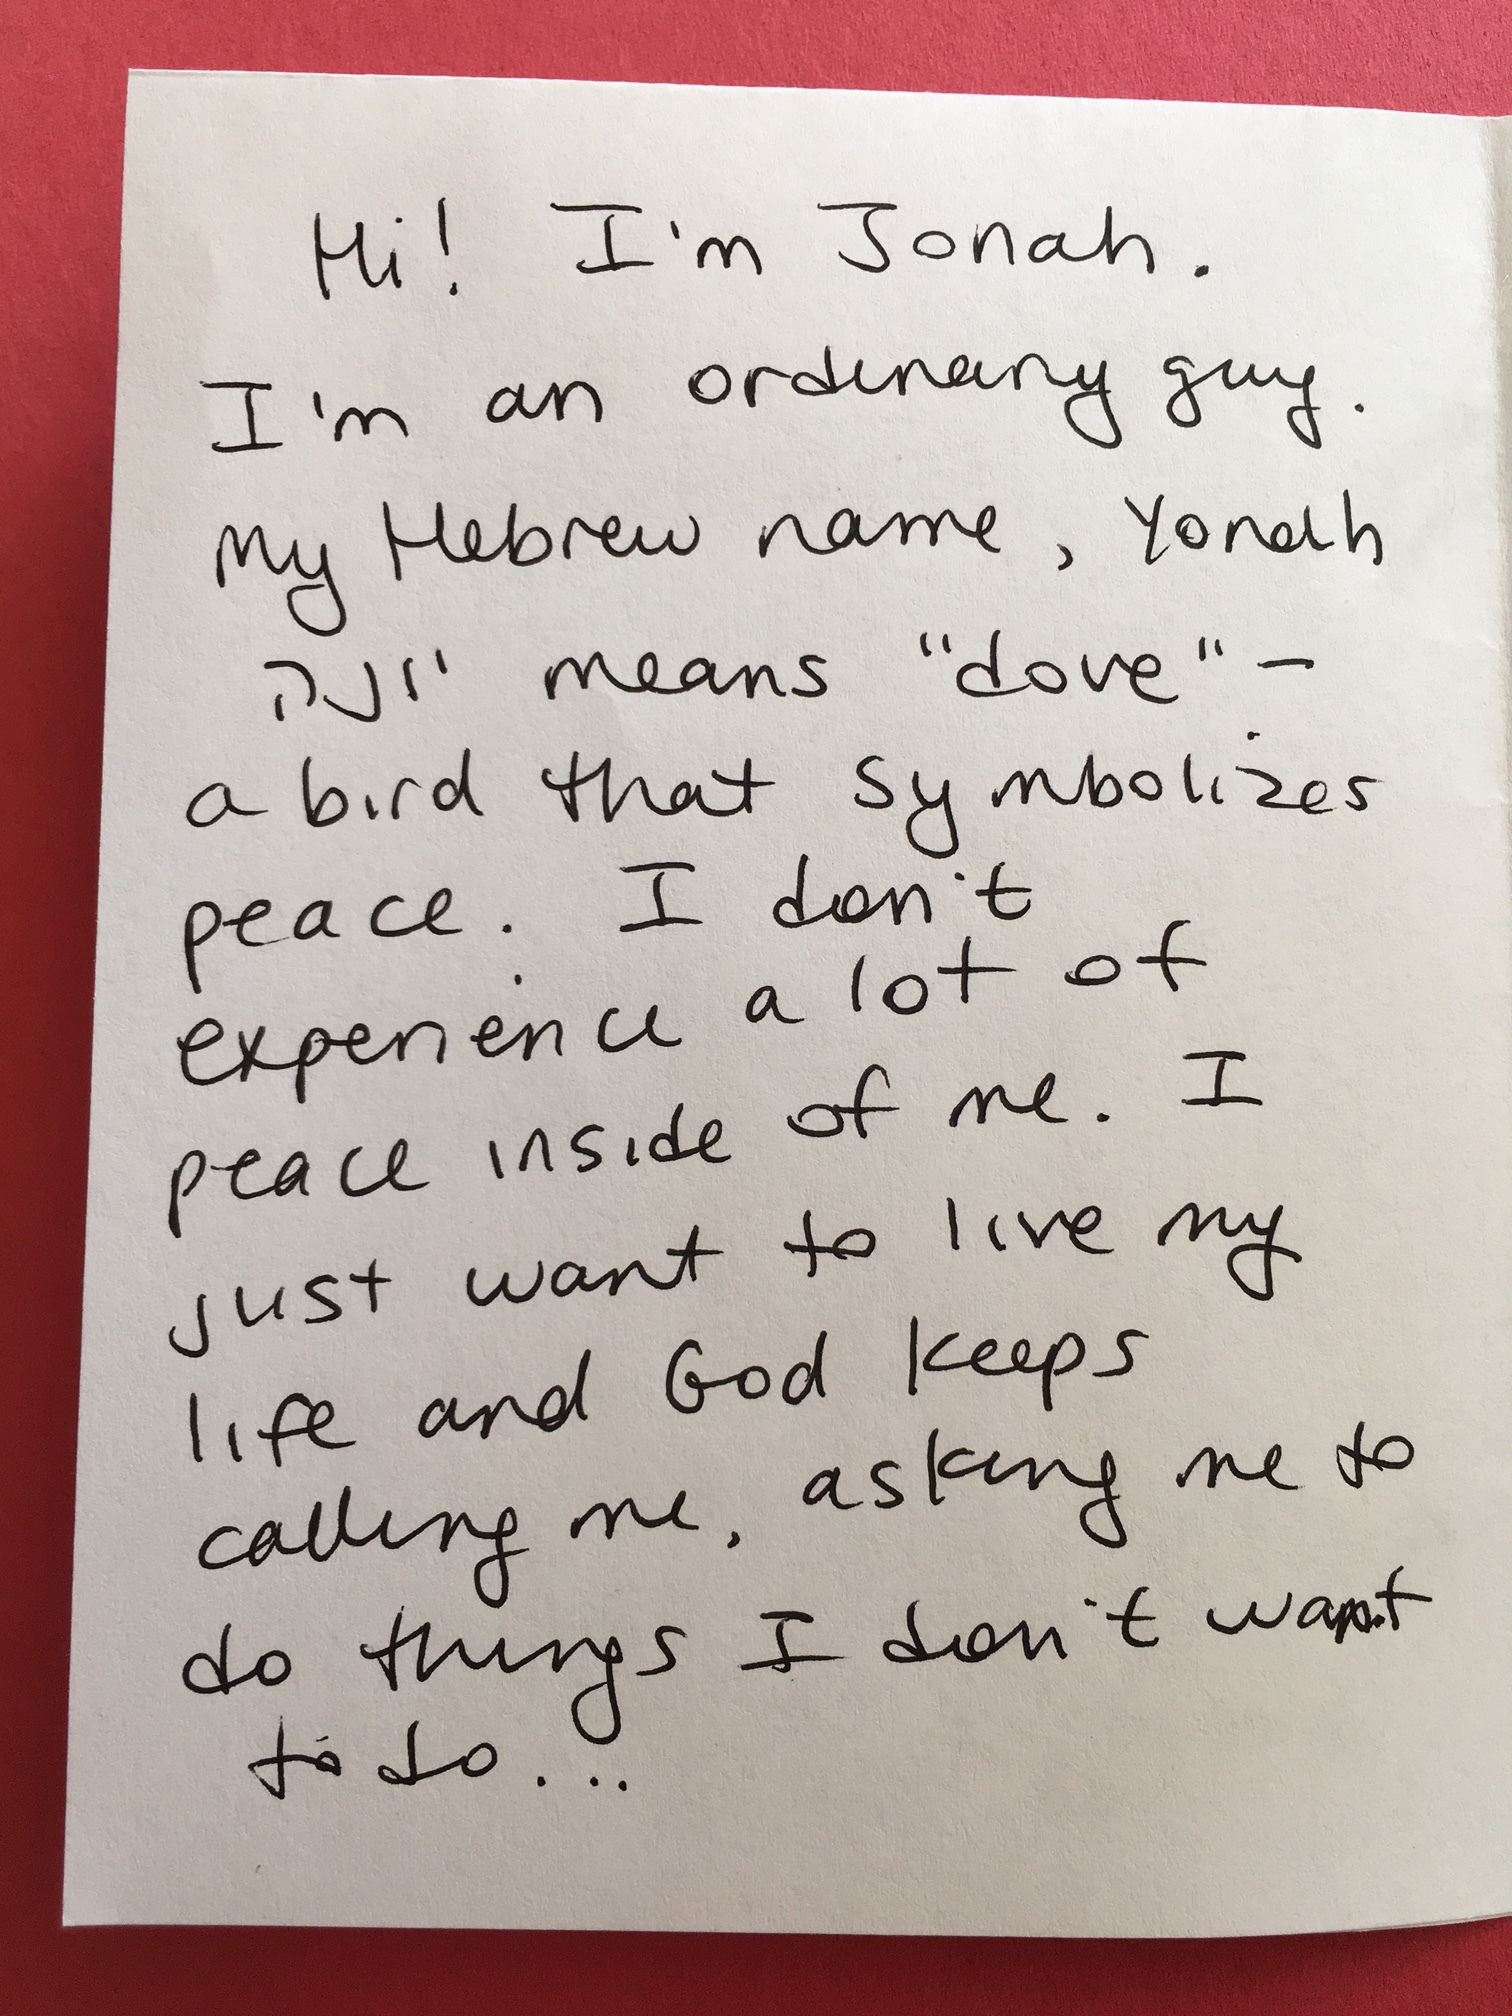 Hi! I'm Jonah.
I'm an ordinary guy.
My Hebrew name, Yonah
יונה means "dove" –
a bird that symbolizes
peace. I don't
experience a lot of
peace inside of me. I
just want to live my
life and God keeps
calling me, asking me to
do things I don't want
to do...